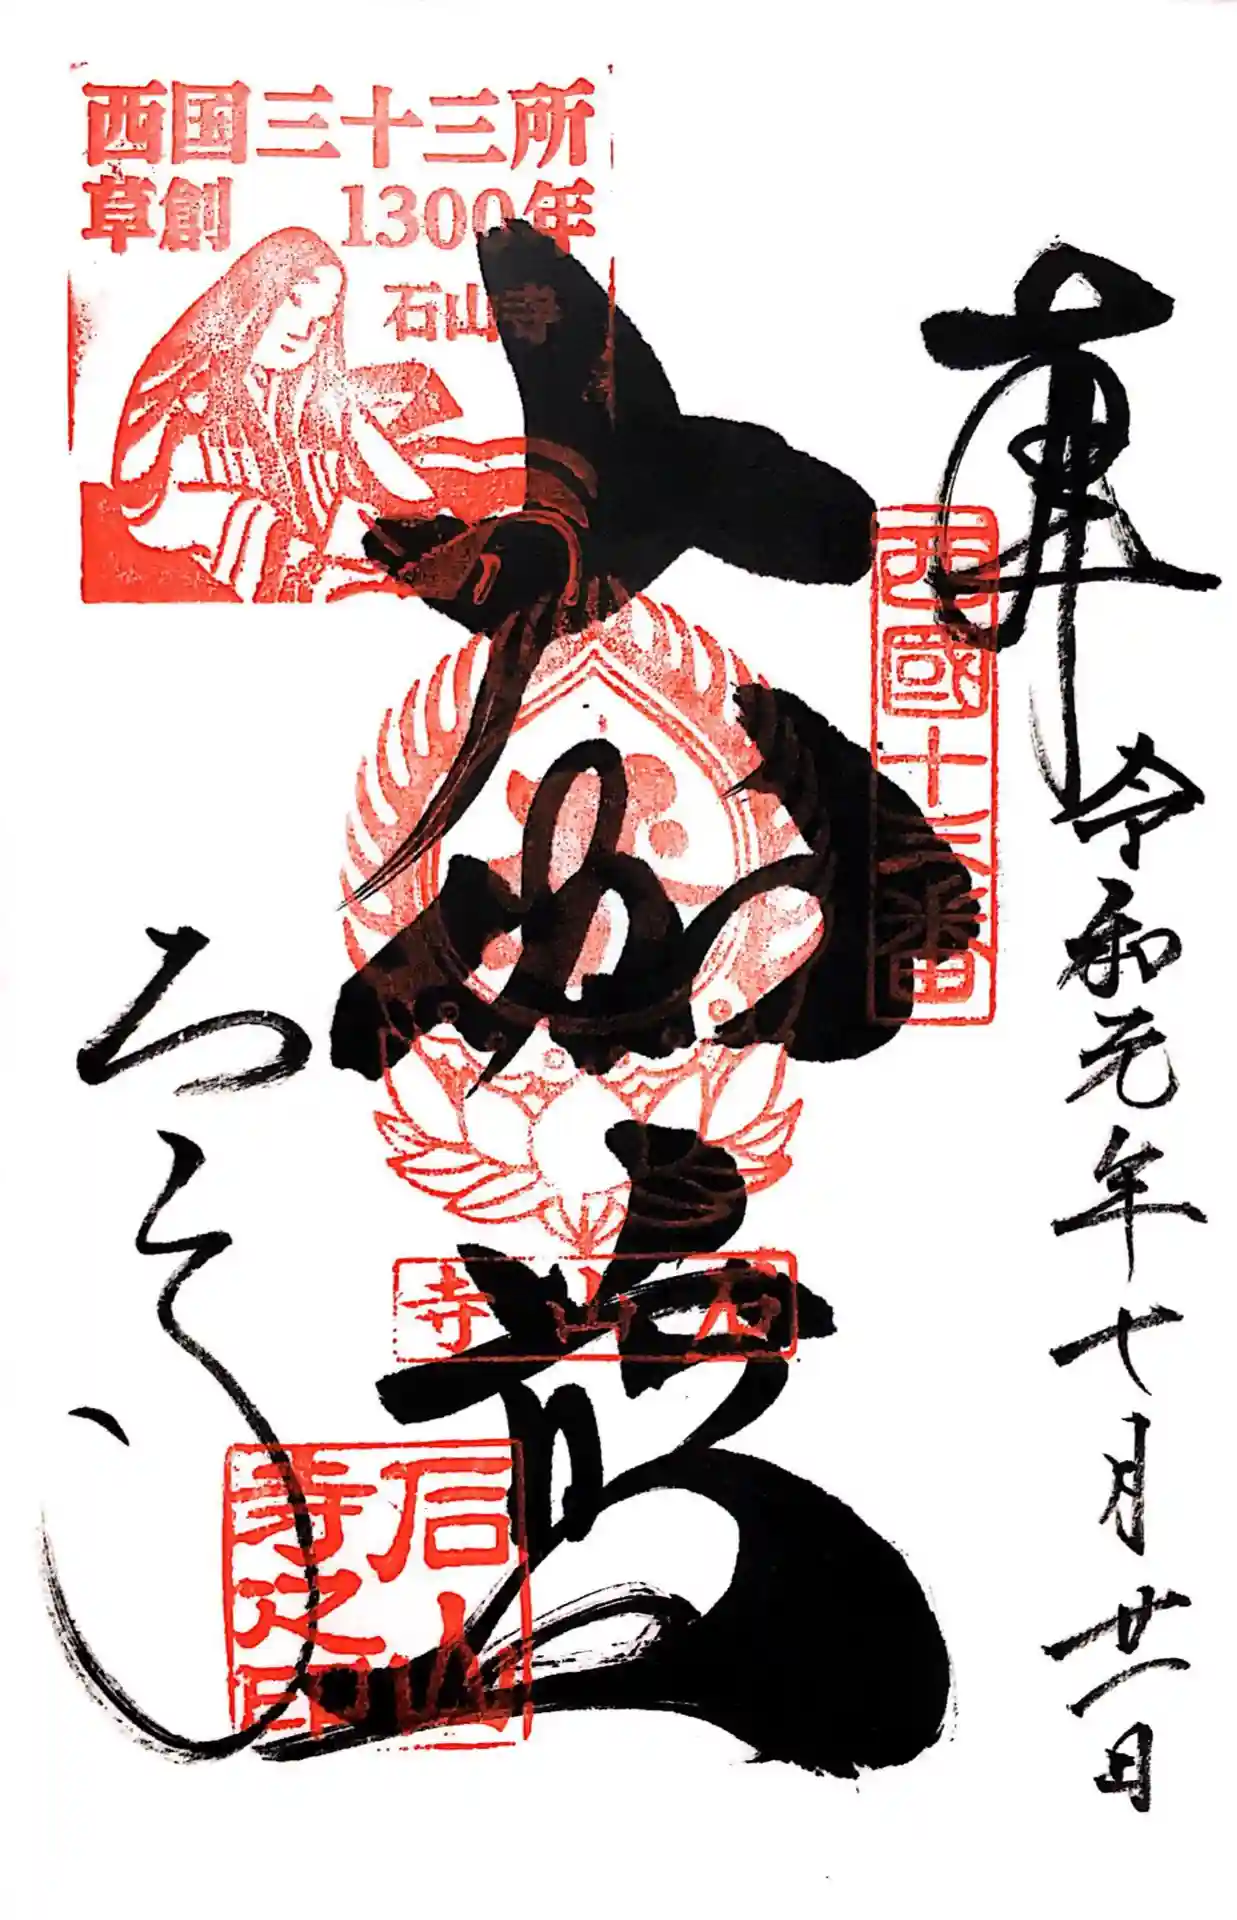 西国三十三所
草創 1300年
石山寺
奉拝
令和元年七月廿一日
西國十三番
大伽藍
石山寺
石山寺
石山寺之印